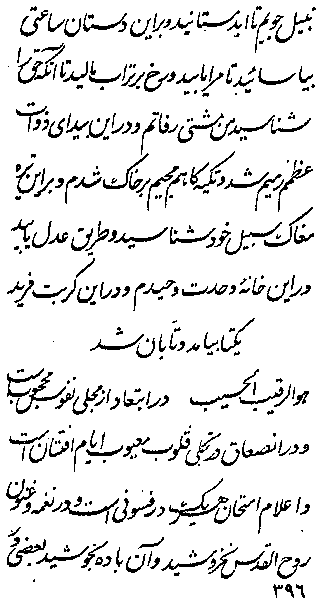 نبیل جویم تا ابد ستانید و بر این دستان ساعتی
بیاسائید تا مرا یابید و رخ بر تراب مالید تا آنکه حق را
شناسید من مشتی رفاتم و در این بیدای ذوات
عظم رمیم شد و تکیه کاهم جحیم بر خاک شدم و بر این تیره
مغاک سبیل خود شناسید و طریق عدل یابید
در این خانهٔ وحدت وحیدم و در این کربت فرید
یکتا بیامد و تابان شد
هو الرقیب الحسیب در ابتعاد از مجلی نفوس
و در انصعاق در تجلی قلوب معیوب ایام افتتان است
و اعلام امتحان هر یک در فسونی است و در نغمه و فنون
روح القدس نخروشید و آن باده نجوشید بعضی
۳۹۶